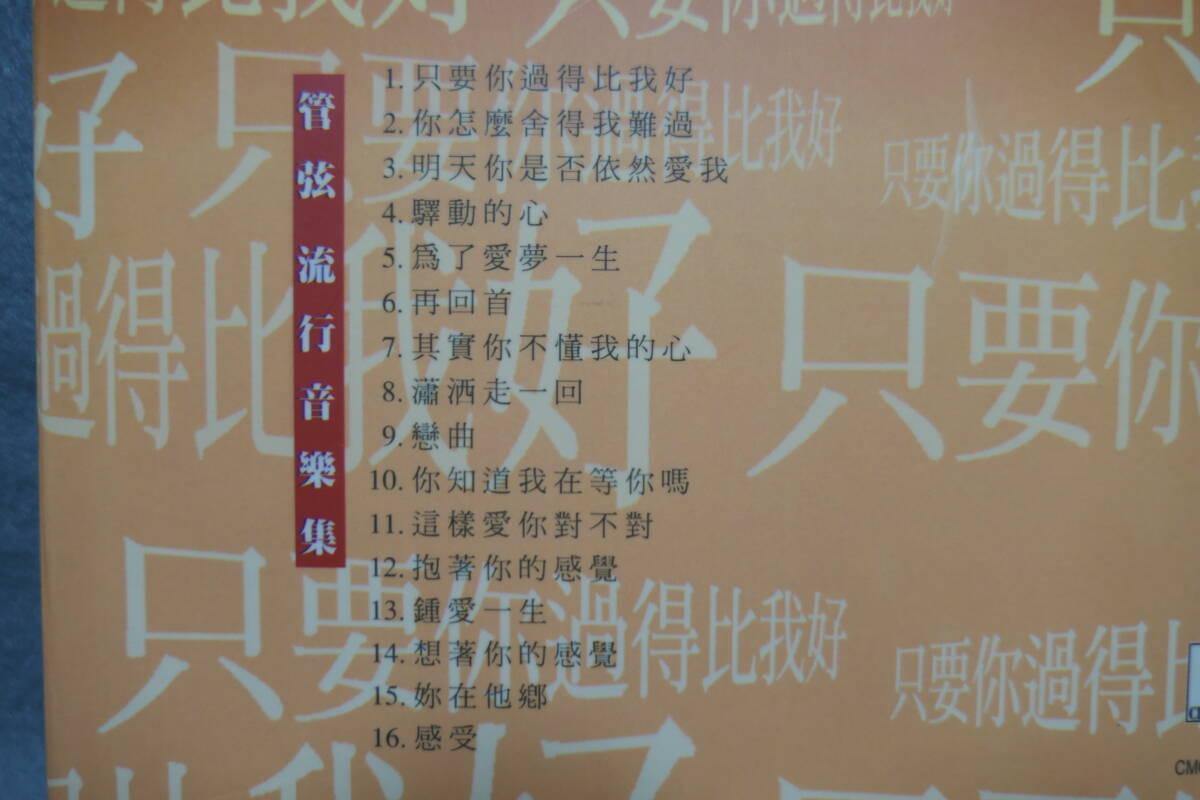 過得比我好
只要你過得比我好
只
好
只要你過得比我好
只要你過得比
過得比我好
只要你
管弦流行音樂集
1. 只要你過得比我好
2. 你怎麼舍得我難過
3. 明天你是否依然愛我
4. 驛動的心
5. 爲了愛夢一生
6. 再回首
7. 其實你不懂我的心
8. 瀟洒走一回
9. 戀曲
10. 你知道我在等你嗎
11. 這樣愛你對不對
12. 抱著你的感覺
13. 鍾愛一生
14. 想著你的感覺
15. 妳在他鄉
16. 感受
只要你過得比我好
只要你過得比
我好
只要